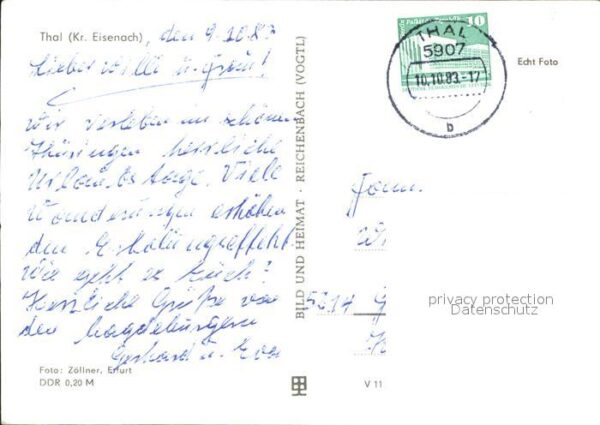 Thal (Kr. Eisenach), den 9.10.83
Lieber Willi u. Frau!
Wir verleben im schönen
Thüringen herrliche
Urlaubstage. Viele
Wanderungen erhöhen
den Erholungseffekt.
Wie geht es Euch?
Herzliche Grüße von
den Magdeburgern
Gerhard u. Eva
Foto: Zöllner, Erfurt
DDR 0,20 M
BILD UND HEIMAT · REICHENBACH (VOGTL)
V 11
10
THAL
5907
10.10.83.-17
b
Echt Foto
Fam.
G
privacy protection
Datenschutz